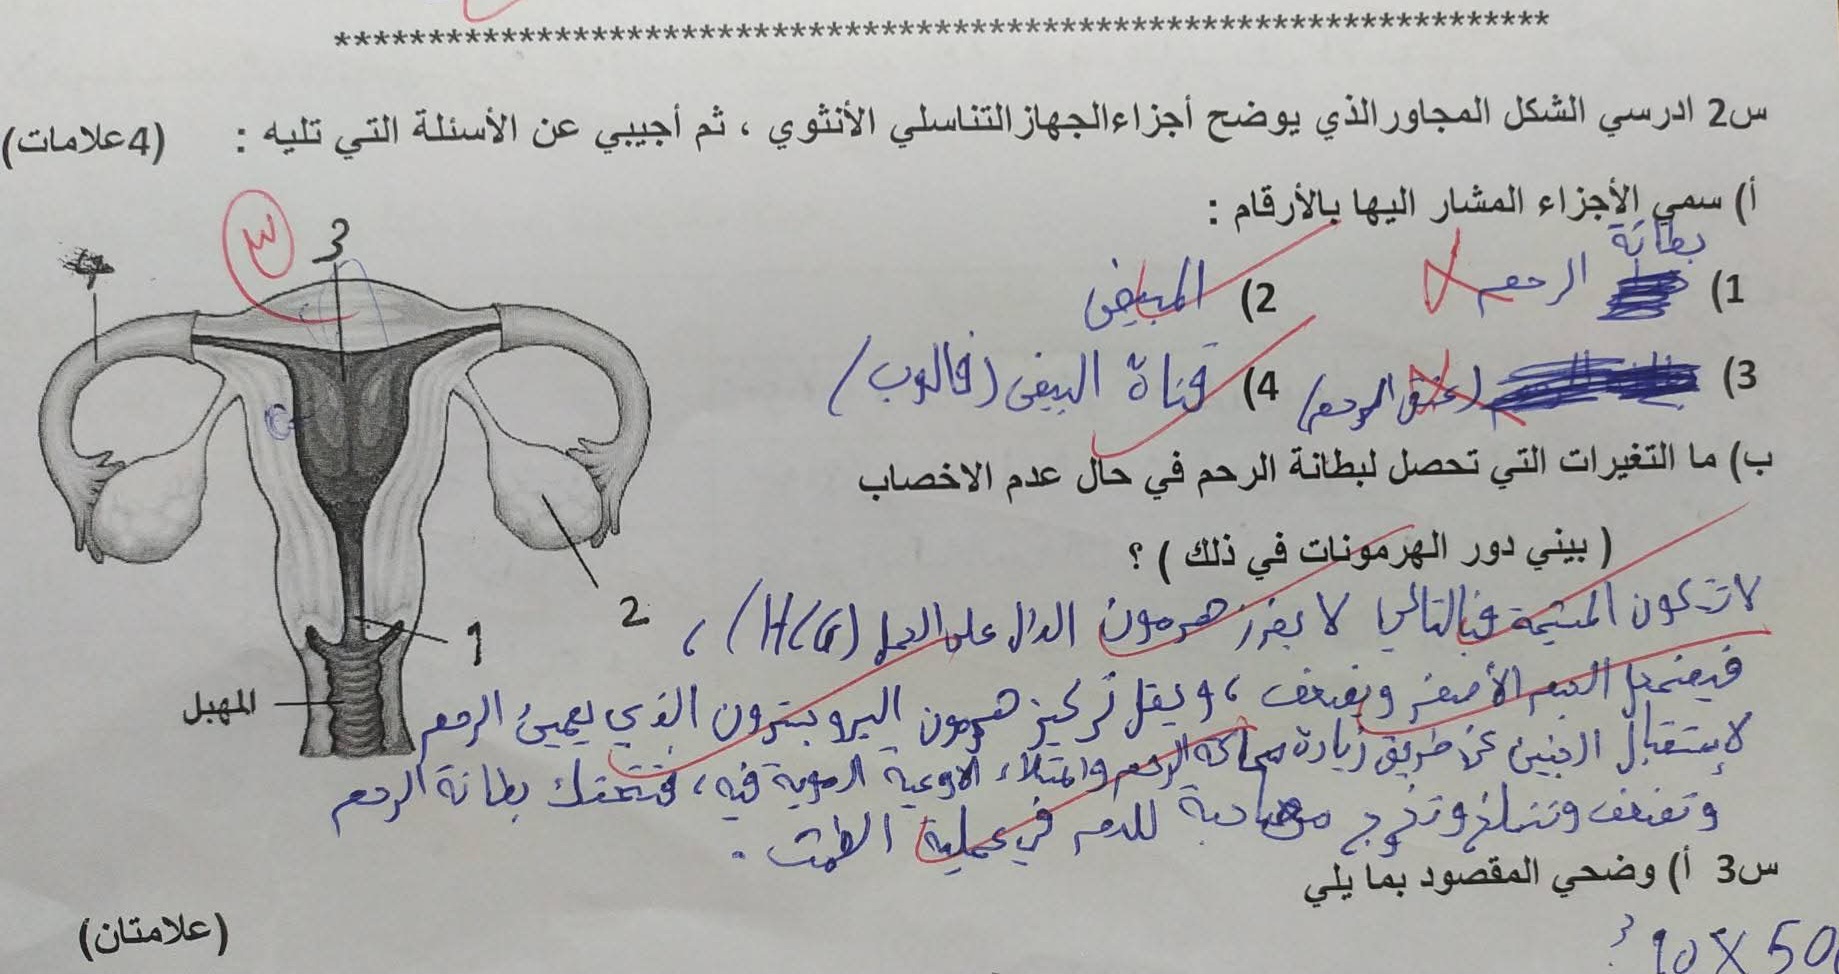 ********************************************************************************
س2 ادرسي الشكل المجاورالذي يوضح أجزاءالجهازالتناسلي الأنثوي ، ثم أجيبي عن الأسئلة التي تليه : (4علامات)
أ) سمي الأجزاء المشار اليها بالأرقام :
1) بطانة الرحم 2) المبيض
3) (عنق الرحم) 4) قناة البيض (فالوب)
ب) ما التغيرات التي تحصل لبطانة الرحم في حال عدم الاخصاب
( بيني دور الهرمونات في ذلك ) ؟
لا تتكون المشيمة فبالتالي لا يفرز هرمون الدال على الحمل (HCG) ،
فيضمحل الجسم الأصفر ويضعف ، ويقل تركيز هرمون البروجسترون الذي يهيئ الرحم
لإستقبال الجنين عن طريق زيادة سماكة الرحم وامتلاء الاوعية الدموية فيه ، فتتفكك بطانة الرحم
وتضعف وتنسلخ وتخرج مصاحبة للدم في عملية الطمث .
3
٣
4
2
1
المهبل
س3 أ) وضحي المقصود بما يلي
(علامتان)
10 X 50